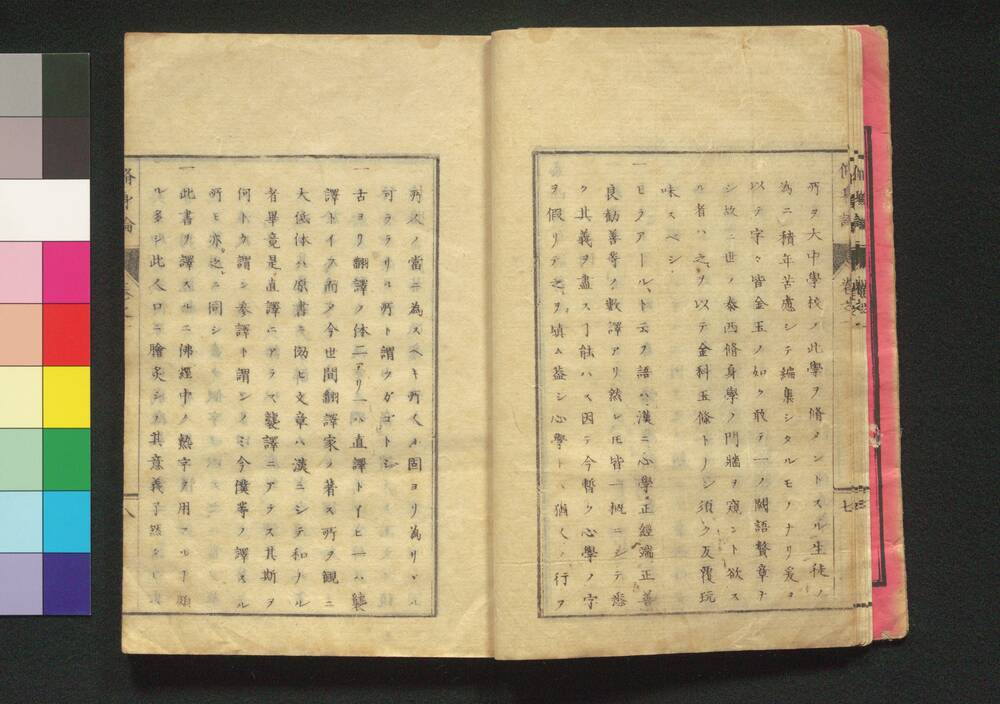 所ヲ大中學校ノ此學ヲ脩メントスル生徒ノ
為ニ積年苦慮シテ編集シタルモノナリ爰ヲ
以テ字々皆金玉ノ如ク敢テ一ノ閑語贅章ナ
シ故ニ世ノ泰西脩身學ノ門牆ヲ窺ント欲ス
ル者ハ之ヲ以テ金科玉條トナシ須ク反覆玩
味スベシ
一モラアールト云フ語ハ漢ニ心學正經端正善
良勧善等ノ數譯アリ然レ𪜈皆一概ニシテ悉
ク其義ヲ盡スヿ能ハス因テ今暫ク心學ノ字
ヲ假リテ之ヲ塡ム蓋シ心學ト猶人ノ行フ
脩身論
卷之一
七
所人ノ當ニ為スヘキ所人ノ固ヨリ為リヽル
可ラサル所ト謂ウガゴトシ
一古ヨリ翻譯ノ体二アリ一ハ直譯トイヒ一ハ襲
譯トイフ而ノ今世間翻譯家ノ著ス所ヲ観ニ
大低体ハ原書ニ協ヒ文章ハ漢ニシテ和ナル
者畢竟是直譯ニアラス襲譯ニアラス其斯ヲ
何トカ謂ン奍譯ト謂ンノミ今僕等ノ譯スル
所モ亦之ニ同シ
一此書ヲ譯スルニ佛經中ノ熟字ヲ用フルヿ頗
ル多シ此人口ニ膾炙シ其意義了然
脩身論
八